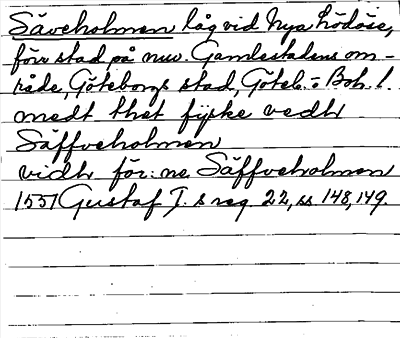 Säveholmen låg vid Nya Lödöse,
förr stad på nuv. Gamlestadens om-
råde, Göteborgs stad, Göteb. o. Boh. l.
medt thet fijske vedh
Säffveholmen
vidh för: ne Säffveholmen
1551 Gustaf I. s reg. 22, ss 148, 149.